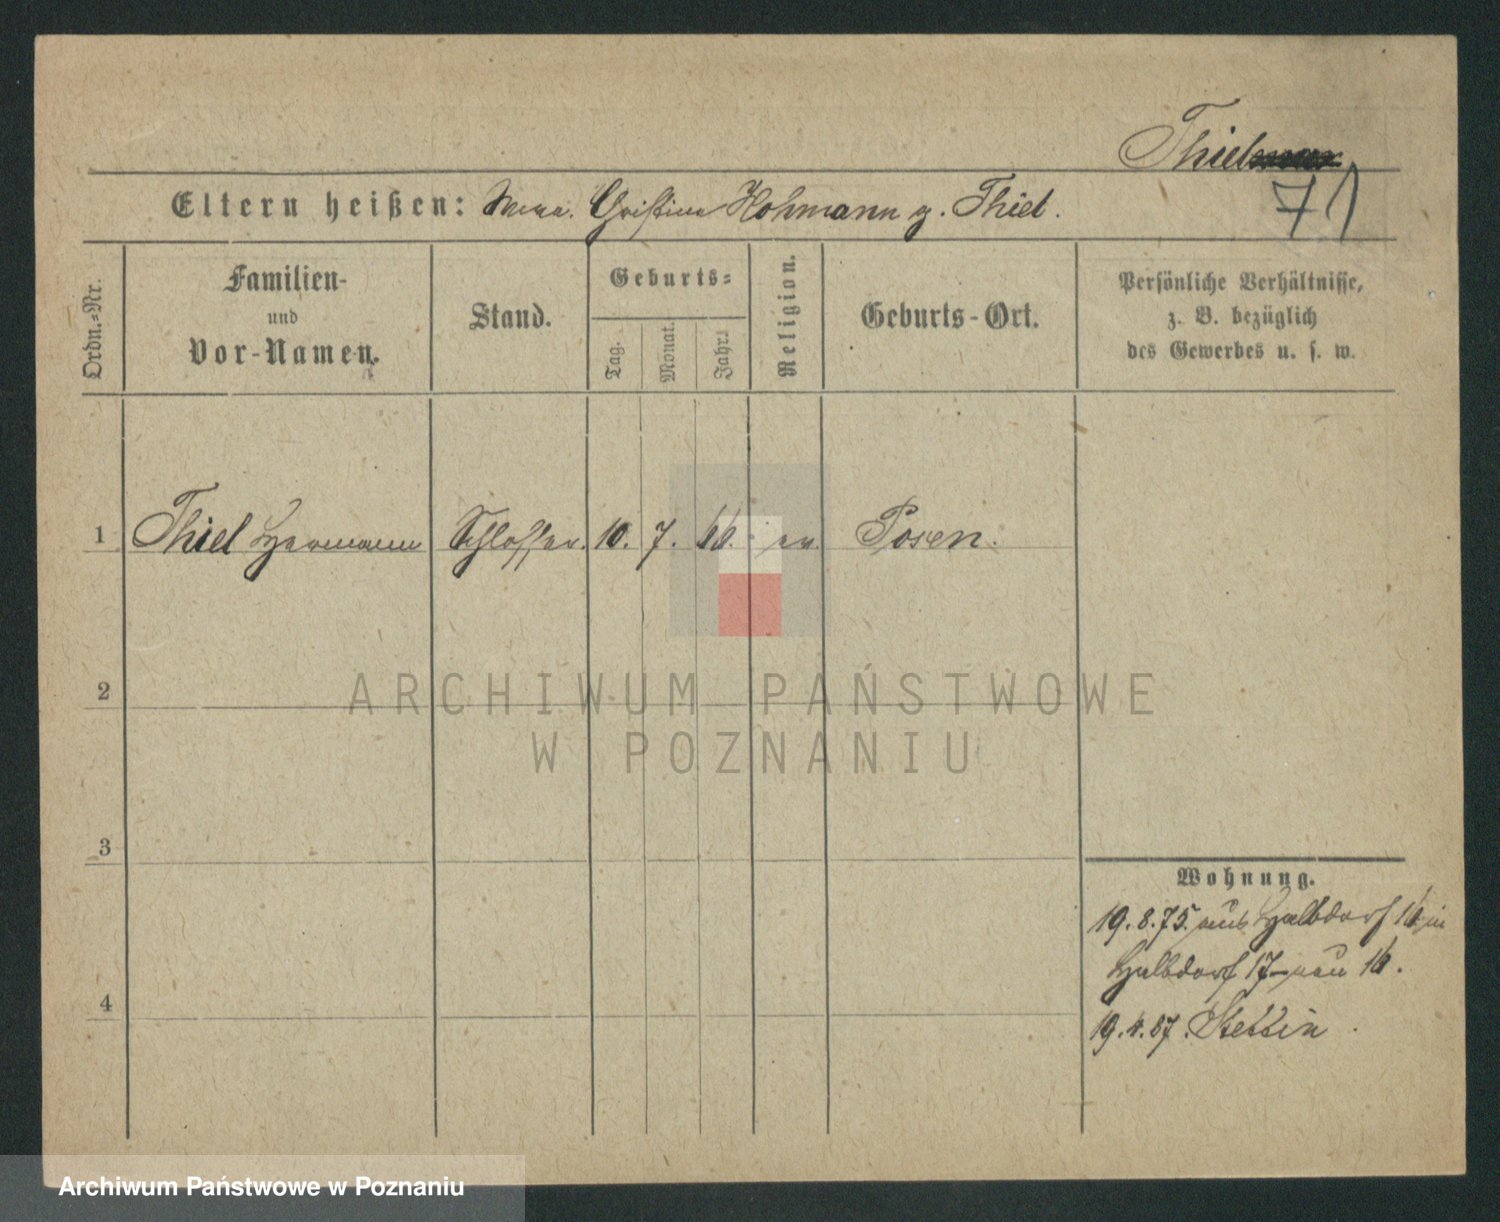 Thiel
71
Eltern heißen: Christine Hohmann g. Thiel.
Ordn.-Nr.
Familien-
und
Vor-Namen.
Stand.
Geburts-
Tag.
Monat.
Jahr.
Religion.
Geburts-Ort.
Persönliche Verhältnisse,
z. B. bezüglich
des Gewerbes u. s. w.
1 Thiel Hermann Schlosser. 10. 7. 66. ev. Posen.
2
3
4
Wohnung.
19.8.75. aus Halbdorf 16 in
Halbdorf 17 16.
19.4.87. Stettin
ARCHIWUM PAŃSTWOWE
W POZNANIU
Archiwum Państwowe w Poznaniu